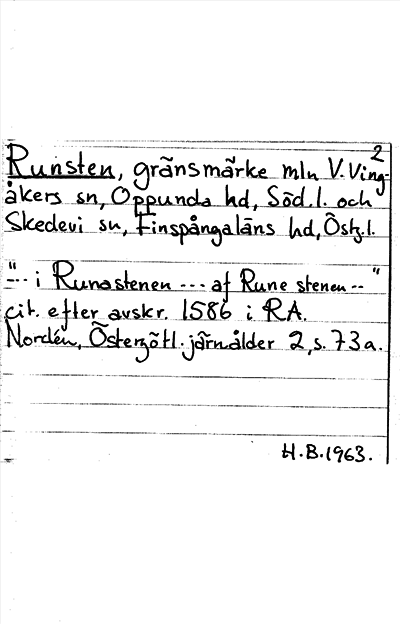 2
Runsten, gränsmärke mln V. Ving-
åkers sn, Oppunda hd, Söd.l. och
Skedevi sn, Finspångaläns hd, Östg.l.
"-.. i Runastenen --- af Rune stenen --"
cit. efter avskr. 1586 i RA.
Nordén, Östergötl. järnålder 2, s. 73 a.
H.B. 1963.